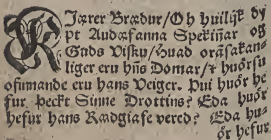 Jærer Brædur/Oh hüilijk dy
pt Audæfanna Spekinar og
Guds Visku/huad oransakan-
liger eru hñs Domar/ & huørsu
ofinnande eru hans Veiger. Þui huør he
fur þeckt Sinne Drottins? Eda huør
hefur hans Rædgiafe vered? Eda hu-
ør hefur